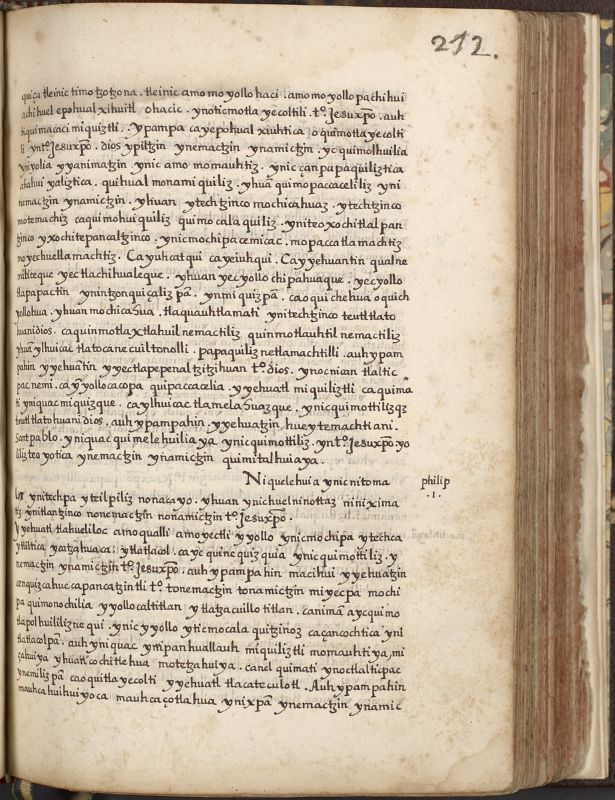 212.
quiça tleinic timotzotzona . tleinic amo moyollo haci . amo moyollo pachihui
achihuel epohual xihuitl ohacic . ynoticmotlayecoltili . tº. Jesuxp̄o . auh
tiquimacaci miquiztli . ypampa ca yepohual xiuhtica ỏquimotlayecolti
li yntº. Jesuxp̄o . dios ypiltzin ynemactzin ynamictzin . yc quimolhuilia
yniyolia yyanimatzin ynic amo momauhtiz . ynic çan papaquiliztica
ahahuiyaliztica . quihualmonamiquiliz . yhuā quimopaccaceliliz yni
nemactzin ynamictzin . yhuan ytechtzinco mochicahuaz . ytechtzinco
motemachiz ca quimohuiquiliz quimocalaquiliz . yniteoxochitlalpan
tzinco yxochitepancaltzinco . ynic mochipa cemicac . mopaccatlamachtiz
moyechuellamachtiz . Ca yuhcatqui ca yeiuhqui . Ca yyehuantin qualne
milliceque yectlachihualeque . yhuan yecyollo chipahuaque . yecyollo
tlapapactin ynintzonquiçaliz pā . ynmiquiz pā . ca oquichehua oquich
yollohua . yhuan mochicahua . tlaquauhtlamati ynitechtzinco teutl tlato
huani dios . ca quinmotlaxtlahuilnemactiliz quinmotlauhtilnemactiliz
yhuā ylhuicac tlatocanecuiltonolli . papaquiliznetlamachtilli . auh ypam
pahin yyehuātin yyectlapepenaltzitzihuan tº. dios . ynocnican tlaltic
pac nemi . ca ȳyollocacopa quipaccacelia . yyehuatl miquiliztli ca quima
ti yniquac miquizque . ca ylhuicac tlamelahuazque . ynic quimottilizqz
teutl tlatohuani dios . auh ypampahin . yyehuatzin huey temachtiani .
Sant pablo . yniquac quimelehuiliaya ynic quimottiliz . yntº. Jesuxp̄o . yo
liliz teoyotica ynemactzin ynamictzin quimitalhuiaya .
Niquelehuia ynic nitoma
philip
.1.
laz ynitechpa yteilpiliz nonacayo . yhuan ynic huel ninottaz ninixima
tiz ynitlantzinco nonemactzin nonamictzin tº. Jesuxp̄o .
Yyehuatl tlahueliloc amo qualli amo yectli yyollo ynic mochipa ytechca
ytliltica ycatzahuaca : ytlatlacol . ayc quinequizquia ynic quimottiliz . y
nemactzin ynamictzin tº. Jesuxp̄o . auh ypampahin macihui yyehuatzin
cenquizcahuecapancatzintli tº. tonemactzin tonamictzin miyecpa mochi
pa quimonochilia yyollocaltitlan ytlatzacuillotitlan . canimā ayc quimo
tlapolhuililiznequi . ynic yyollo ytic mocalaquitzinoz ca çancochtica yni
tlatlacolpā . auh yniquac ytripanhuallauh miquiliztli momauhtiya, mi
çahuiya yhuatl cochitlehua motetzahuiya . canel quimati ynoctlalticpac
ynemiliz pā ca oquitlayecolti yyehuatl tlacateculotl . Auh ypampahin
mauhcahuihuiyoca mauhcaçotlahua ynixpā ynemactzin ynamic